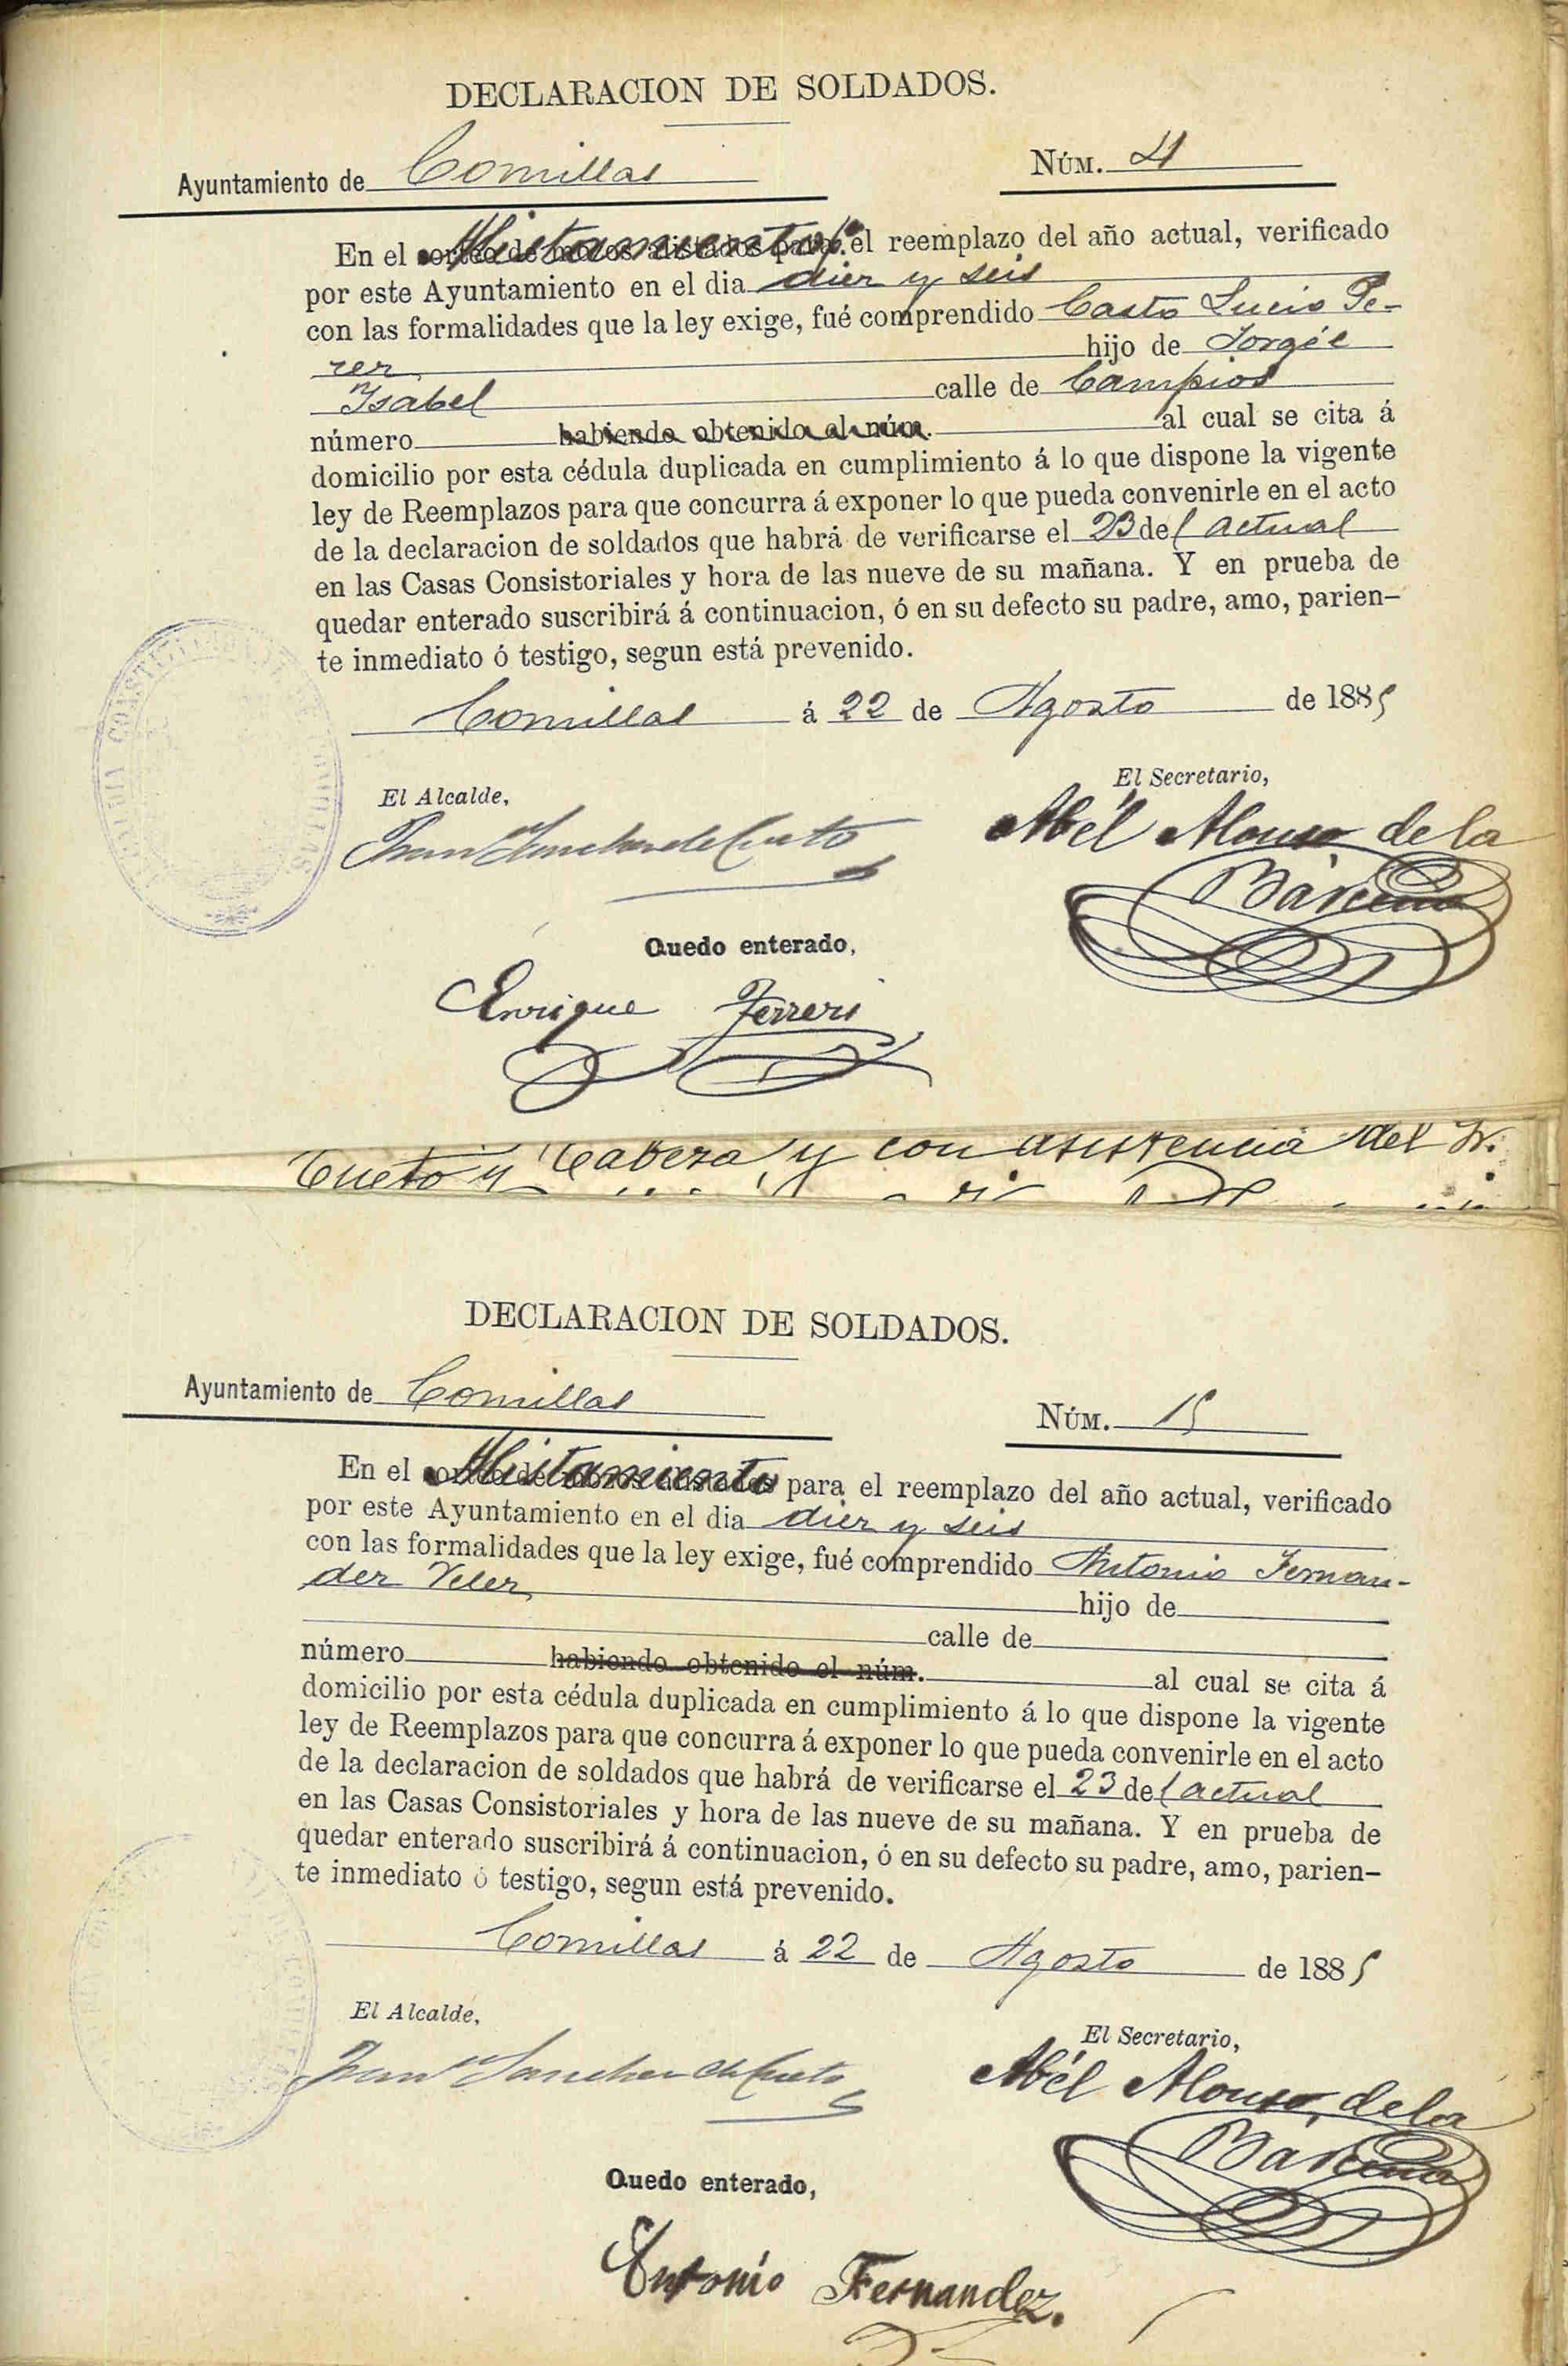 DECLARACION DE SOLDADOS.
Ayuntamiento de Comillas
NÚM. 4
En el sorteo de mozos alistados para Alistamiento p.ª el reemplazo del año actual, verificado
por este Ayuntamiento en el dia diez y seis
con las formalidades que la ley exige, fué comprendido Casto Lucio Pe-
rez
hijo de Jorge é
Isabel calle de Campios
número habiendo obtenido el núm. al cual se cita á
domicilio por esta cédula duplicada en cumplimiento á lo que dispone la vigente
ley de Reemplazos para que concurra á exponer lo que pueda convenirle en el acto
de la declaracion de soldados que habrá de verificarse el 23 del actual
en las Casas Consistoriales y hora de las nueve de su mañana. Y en prueba de
quedar enterado suscribirá á continuacion, ó en su defecto su padre, amo, parien-
te inmediato ó testigo, segun está prevenido.
Comillas á 22 de Agosto de 1885
El Alcalde,
El Secretario,
Juan Sanchez de Cueto
Abél Alonso de la
Bárcena
Quedo enterado,
Enrique Ferreri
Cueto y Cabeza y con asistencia del Sr.
DECLARACION DE SOLDADOS.
Ayuntamiento de Comillas
NÚM. 15
En el sorteo de mozos alistados Alistamiento para el reemplazo del año actual, verificado
por este Ayuntamiento en el dia diez y seis
con las formalidades que la ley exige, fué comprendido Antonio Fernan-
dez Velez
hijo de
calle de
número habiendo obtenido el núm. al cual se cita á
domicilio por esta cédula duplicada en cumplimiento á lo que dispone la vigente
ley de Reemplazos para que concurra á exponer lo que pueda convenirle en el acto
de la declaracion de soldados que habrá de verificarse el 23 del actual
en las Casas Consistoriales y hora de las nueve de su mañana. Y en prueba de
quedar enterado suscribirá á continuacion, ó en su defecto su padre, amo, parien-
te inmediato ó testigo, segun está prevenido.
Comillas á 22 de Agosto de 1885
El Alcalde,
El Secretario,
Juan Sanchez de Cueto
Abél Alonso de la
Bárcena
Quedo enterado,
Antonio Fernandez.